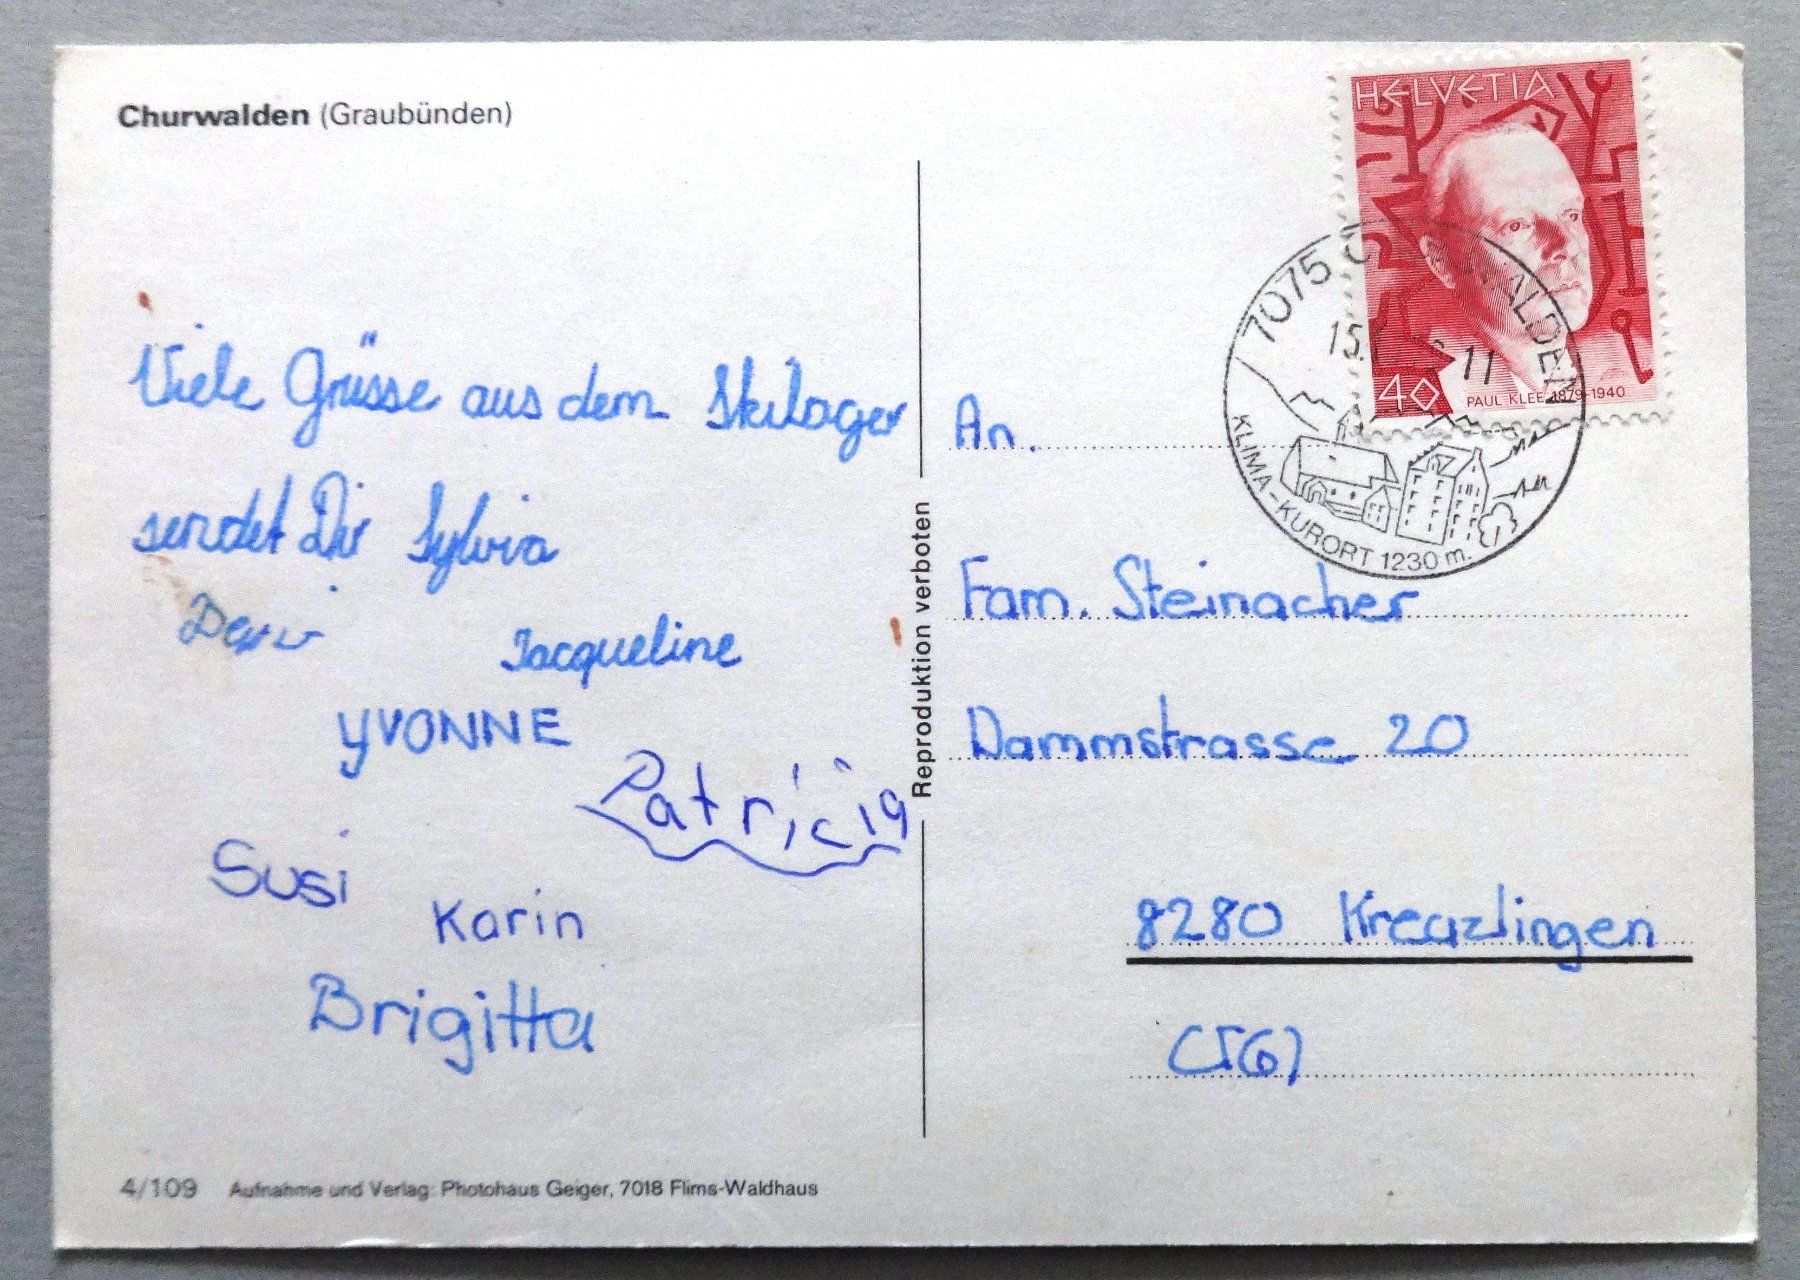 Churwalden (Graubünden)
Viele Grüsse aus dem Skilager
sendet Dir Sylvia
Jacqueline
YVONNE
Patricia
Susi
Karin
Brigitta
4/109 Aufnahme und Verlag: Photohaus Geiger, 7018 Flims-Waldhaus
Reproduktion verboten
HELVETIA
40
PAUL KLEE 1879-1940
7075 CHURWALDEN
15. 11
KLIMA-KURORT 1230 m.
An.
Fam. Steinacher
Dammstrasse 20
8280 Kreuzlingen
(TG)